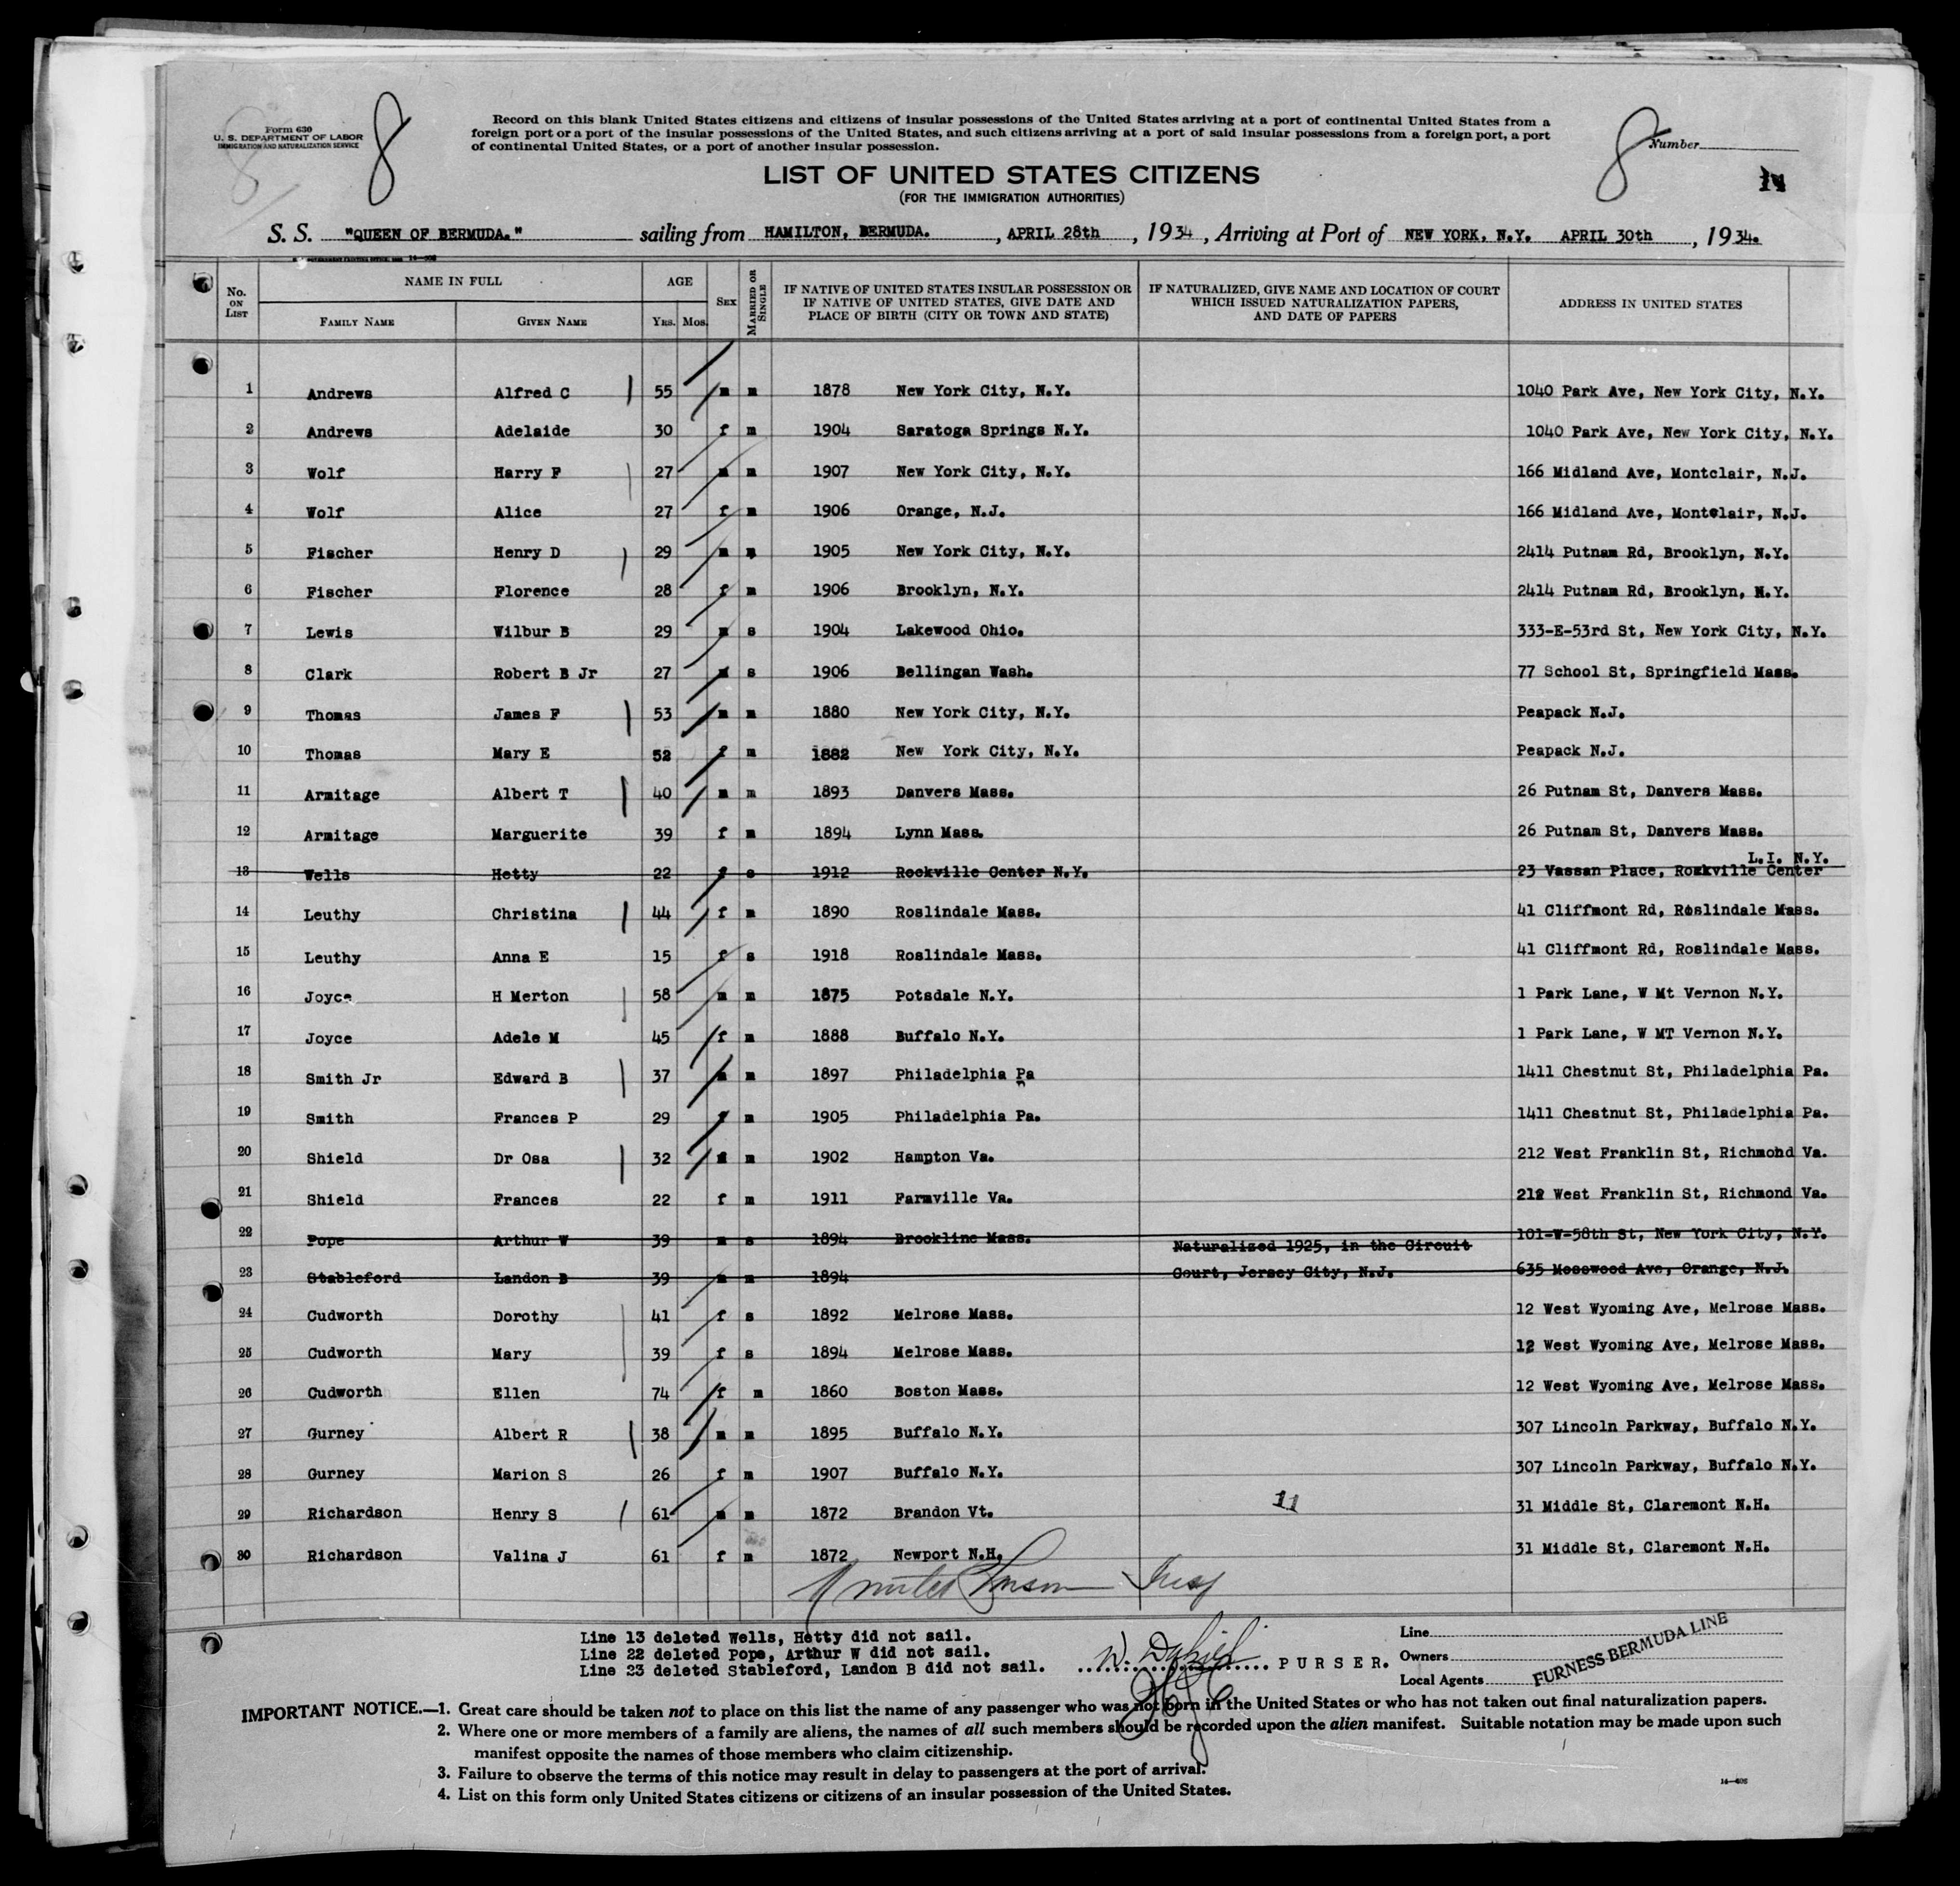 8
8
Form 630
U. S. DEPARTMENT OF LABOR
IMMIGRATION AND NATURALIZATION SERVICE
Record on this blank United States citizens and citizens of insular possessions of the United States arriving at a port of continental United States from a
foreign port or a port of the insular possessions of the United States, and such citizens arriving at a port of said insular possessions from a foreign port, a port
of continental United States, or a port of another insular possession.
8
Number
LIST OF UNITED STATES CITIZENS
(FOR THE IMMIGRATION AUTHORITIES)
S. S. "QUEEN OF BERMUDA." sailing from HAMILTON, BERMUDA. , APRIL 28th , 1934 , Arriving at Port of NEW YORK, N.Y. APRIL 30th , 1934.
No. ON LIST NAME IN FULL AGE SEX MARRIED OR SINGLE IF NATIVE OF UNITED STATES INSULAR POSSESSION OR IF NATIVE OF UNITED STATES, GIVE DATE AND PLACE OF BIRTH (CITY OR TOWN AND STATE) IF NATURALIZED, GIVE NAME AND LOCATION OF COURT WHICH ISSUED NATURALIZATION PAPERS, AND DATE OF PAPERS ADDRESS IN UNITED STATES
FAMILY NAME GIVEN NAME YRS. MOS.
1 Andrews Alfred C 55 m m 1878 New York City, N.Y. 1040 Park Ave, New York City, N.Y.
2 Andrews Adelaide 30 f m 1904 Saratoga Springs N.Y. 1040 Park Ave, New York City, N.Y.
3 Wolf Harry F 27 m m 1907 New York City, N.Y. 166 Midland Ave, Montclair, N.J.
4 Wolf Alice 27 f m 1906 Orange, N.J. 166 Midland Ave, Montclair, N.J.
5 Fischer Henry D 29 m m 1905 New York City, N.Y. 2414 Putnam Rd, Brooklyn, N.Y.
6 Fischer Florence 28 f m 1906 Brooklyn, N.Y. 2414 Putnam Rd, Brooklyn, N.Y.
7 Lewis Wilbur B 29 m s 1904 Lakewood Ohio. 333-E-53rd St, New York City, N.Y.
8 Clark Robert B Jr 27 m s 1906 Bellingan Wash. 77 School St, Springfield Mass.
9 Thomas James F 53 m m 1880 New York City, N.Y. Peapack N.J.
10 Thomas Mary E 52 f m 1882 New York City, N.Y. Peapack N.J.
11 Armitage Albert T 40 m m 1893 Danvers Mass. 26 Putnam St, Danvers Mass.
12 Armitage Marguerite 39 f m 1894 Lynn Mass. 26 Putnam St, Danvers Mass.
L.I. N.Y.
13 Wells Hetty 22 f s 1912 Rockville Center N.Y. 23 Vassan Place, Rockville Center
14 Leuthy Christina 44 f m 1890 Roslindale Mass. 41 Cliffmont Rd, Roslindale Mass.
15 Leuthy Anna E 15 f s 1918 Roslindale Mass. 41 Cliffmont Rd, Roslindale Mass.
16 Joyce H Merton 58 m m 1875 Potsdale N.Y. 1 Park Lane, W Mt Vernon N.Y.
17 Joyce Adele M 45 f m 1888 Buffalo N.Y. 1 Park Lane, W MT Vernon N.Y.
18 Smith Jr Edward B 37 m m 1897 Philadelphia Pa 1411 Chestnut St, Philadelphia Pa.
19 Smith Frances P 29 f m 1905 Philadelphia Pa. 1411 Chestnut St, Philadelphia Pa.
20 Shield Dr Osa 32 m m 1902 Hampton Va. 212 West Franklin St, Richmond Va.
21 Shield Frances 22 f m 1911 Farmville Va. 212 West Franklin St, Richmond Va.
22 Pope Arthur W 39 m s 1894 Brookline Mass. 101-W-58th St, New York City, N.Y.
Naturalized 1925, in the Circuit
23 Stableford Landon B 39 m m 1894 Court, Jersey City, N.J. 635 Mosswood Ave, Orange, N.J.
24 Cudworth Dorothy 41 f s 1892 Melrose Mass. 12 West Wyoming Ave, Melrose Mass.
25 Cudworth Mary 39 f s 1894 Melrose Mass. 12 West Wyoming Ave, Melrose Mass.
26 Cudworth Ellen 74 f m 1860 Boston Mass. 12 West Wyoming Ave, Melrose Mass.
27 Gurney Albert R 38 m m 1895 Buffalo N.Y. 307 Lincoln Parkway, Buffalo N.Y.
28 Gurney Marion S 26 f m 1907 Buffalo N.Y. 307 Lincoln Parkway, Buffalo N.Y.
11
29 Richardson Henry S 61 m m 1872 Brandon Vt. 31 Middle St, Claremont N.H.
30 Richardson Valina J 61 f m 1872 Newport N.H. 31 Middle St, Claremont N.H.
Insp
Line 13 deleted Wells, Hetty did not sail.
Line 22 deleted Pope, Arthur W did not sail.
Line 23 deleted Stableford, Landon B did not sail.
PURSER.
Line
Owners
Local Agents
FURNESS BERMUDA LINE
IMPORTANT NOTICE.—1. Great care should be taken not to place on this list the name of any passenger who was not born in the United States or who has not taken out final naturalization papers.
2. Where one or more members of a family are aliens, the names of all such members should be recorded upon the alien manifest. Suitable notation may be made upon such
manifest opposite the names of those members who claim citizenship.
3. Failure to observe the terms of this notice may result in delay to passengers at the port of arrival.
4. List on this form only United States citizens or citizens of an insular possession of the United States.